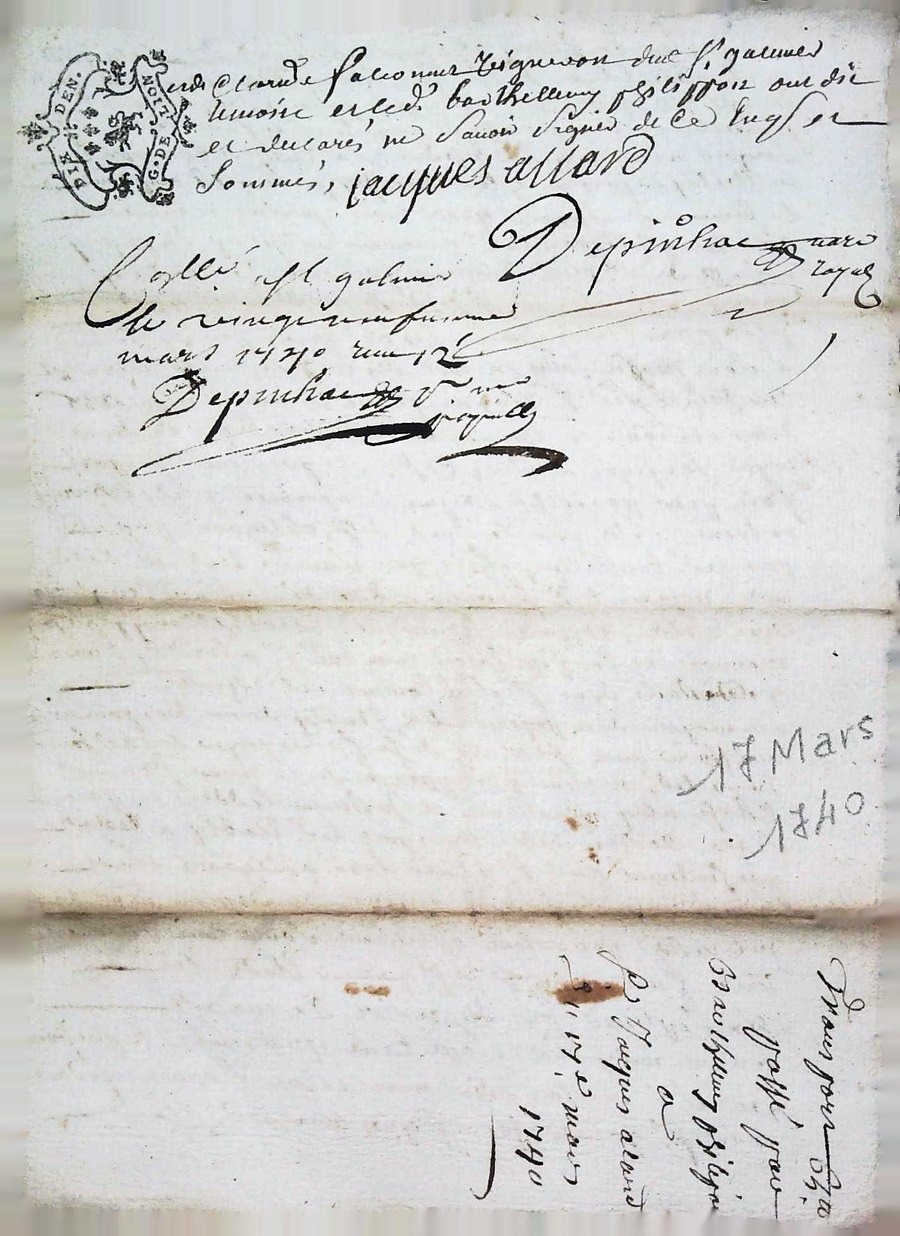 DIX DEN.
G. DE NOIT
Claude falconnet vigneron dud. St galmier
temoins et led. barthellemy philippon ont dit
et declarés ne savoir signer de ce enquis et
sommés, jacques allard
Depinhac nore
royal
Collé a St galmier
le vingt neufvieme
mars 1740 12
Depinhac
17 Mars
1740
Transport
passé par
Barthelemy
a
Sr Jacques alard
du 17e mars
1740